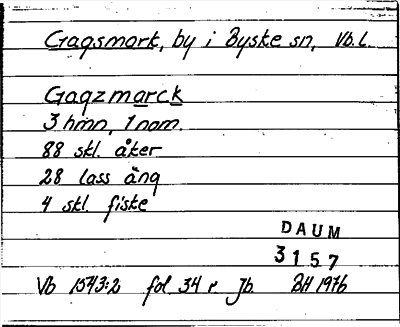 Gagsmark, by i Byske sn, Vb. L.
Gagzmarck
3 hmn, 1 nom.
88 skl. åker
28 lass äng
4 skl. fiske
DAUM
3157
Vb 1543:2 fol. 34 r. Jb. BH 1976